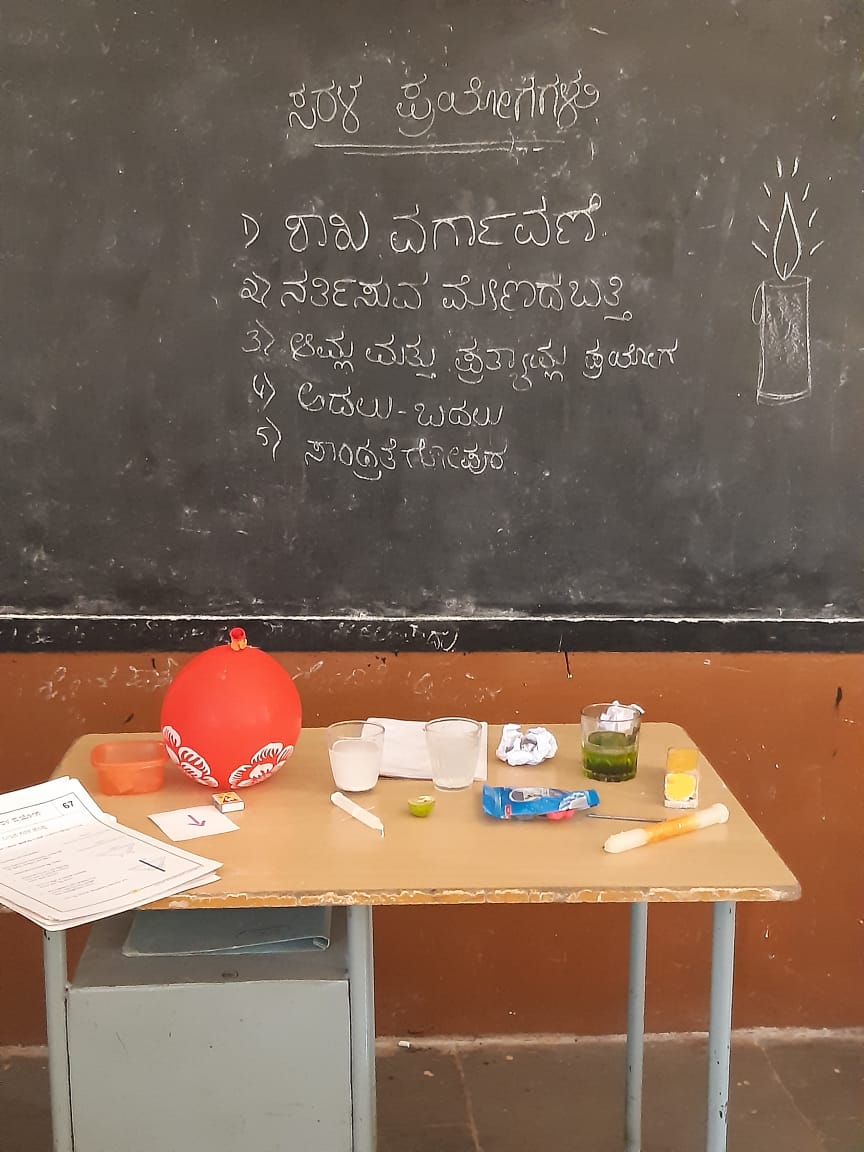 ಸರಳ ಪ್ರಯೋಗಗಳು
1) ಶಾಖ ವರ್ಗಾವಣೆ
2) ನರ್ತಿಸುವ ಮೇಣದಬತ್ತಿ
3) ಆಮ್ಲ ಮತ್ತು ಪ್ರತ್ಯಾಮ್ಲ ಪ್ರಯೋಗ
4) ಅದಲು-ಬದಲು
5) ಸಾಂದ್ರತೆ ಗೋಪುರ
67